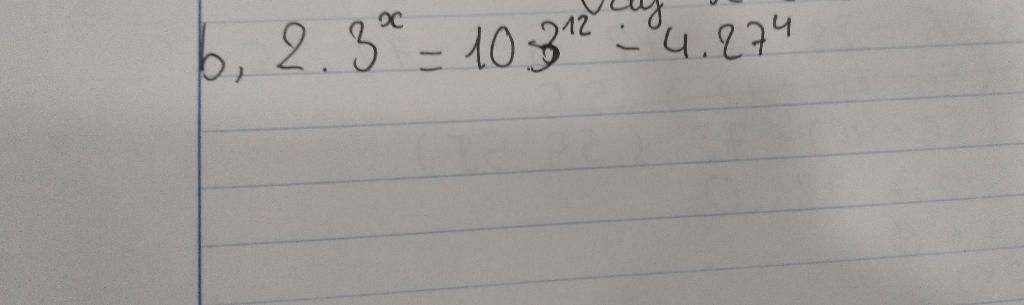 b, 2 . 3^x = 10 3^12 - 4.27^4